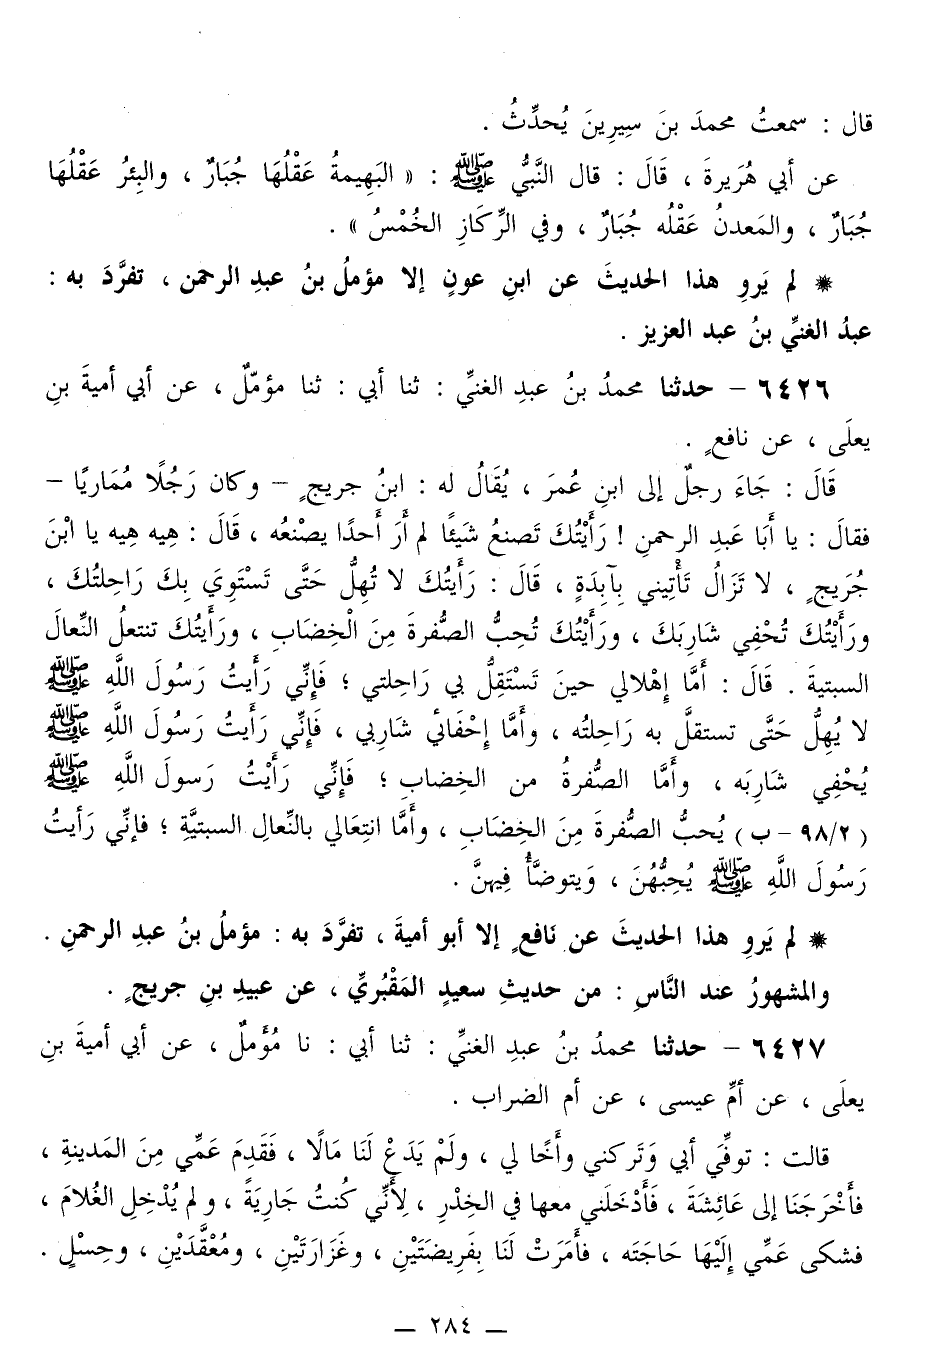 قال : سمعتُ محمدَ بنَ سِيرِينَ يُحدِّثُ .
عن أبي هُرَيرةَ ، قَالَ : قال النَّبيُّ ﷺ : « البَهِيمةُ عَقْلُهَا جُبَارٌ ، والبِئرُ عَقْلُهَا
جُبَارٌ ، والمَعدنُ عَقْلُه جُبَارٌ ، وفي الرِّكَازِ الخُمْسُ » .
* لم يَروِ هذا الحديثَ عن ابنِ عونٍ إلا مؤملُ بنُ عبدِ الرحمن ، تفرَّدَ به :
عبدُ الغنيِّ بنُ عبد العزيز .
٦٤٢٦ – حدثنا محمدُ بنُ عبدِ الغنيِّ : ثنا أبي : ثنا مؤمّلٌ ، عن أبي أميةَ بنِ
يعلَى ، عن نافعٍ .
قَالَ : جَاءَ رجلٌ إلى ابنِ عُمرَ ، يُقَالُ له : ابنُ جريجٍ – وكان رَجُلًا مُمَاريًا –
فقالَ : يا أبَا عَبدِ الرحمنِ ! رَأَيْتُكَ تَصنعُ شَيئًا لم أَرَ أَحدًا يصْنعُه ، قَالَ : هِيه هِيه يا ابْنَ
جُرَيجٍ ، لا تَزَالُ تَأْتِيني بِآبِدَةٍ ، قَالَ : رَأَيتُكَ لا تُهِلُّ حَتَّى تَسْتَوِيَ بِكَ رَاحِلتُكَ ،
ورَأَيْتُكَ تُحْفِي شَارِبَكَ ، ورَأَيْتُكَ تُحِبُّ الصُّفرةَ مِنَ الْخِضَابِ ، ورَأَيتُكَ تنتعلُ النِّعالَ
السبتيةَ . قَالَ : أَمَّا إهْلالي حينَ تَسْتَقِلُّ بي رَاحِلتي ؛ فَإنِّي رَأَيتُ رَسُولَ اللَّهِ ﷺ
لا يُهِلُّ حَتَّى تستقلَّ به رَاحِلتُه ، وأَمَّا إحْفَائي شَارِبي ، فَإِنِّي رَأَيتُ رَسُولَ اللَّهِ ﷺ
يُحْفِي شَارِبَه ، وأَمَّا الصُّفرةُ من الخِضاب ؛ فَإِنِّي رَأَيْتُ رَسولَ اللَّهِ ﷺ
( ٩٨/٢ – ب ) يُحبُّ الصُّفرةَ مِنَ الخِضَابِ ، وأَمَّا انتِعَالي بالنِّعالِ السبتيَّةِ ؛ فإنِّي رَأيتُ
رَسُولَ اللَّهِ ﷺ يُحِبُّهُنَ ، وَيتوضَّأُ فِيهنَّ .
* لم يَروِ هذا الحديثَ عن نَافعٍ إلا أبو أميةَ ، تفرَّدَ به : مؤملُ بنُ عبدِ الرحمنِ .
والمشهورُ عند النَّاسِ : من حديثِ سعيدٍ المَقْبُريِّ ، عن عبيدِ بنِ جريجٍ .
٦٤٢٧ – حدثنا محمدُ بنُ عبدِ الغنيِّ : ثنا أبي : نا مُؤَملٌ ، عن أبي أميةَ بنِ
يعلَى ، عن أمِّ عيسى ، عن أم الضراب .
قالت : توفِّيَ أبي وَتَركني وأَخًا لي ، ولَمْ يَدَعْ لَنَا مَالًا ، فَقَدِمَ عَمِّي مِنَ المَدينةِ ،
فأَخْرَجَنَا إلى عَائِشةَ ، فَأَدْخَلَني معها في الخِدْرِ ، لِأَنِّي كُنتُ جَارِيَةً ، ولم يُدْخِلِ الغُلامَ ،
فشكى عَمِّي إِلَيْهَا حَاجَتَه ، فأَمَرَتْ لَنَا بِفَرِيضَتَيْنِ ، وغَزَارَتَيْنِ ، ومُعْقَّدَيْنِ ، وحِسْلٍ .
– ٢٨٤ –